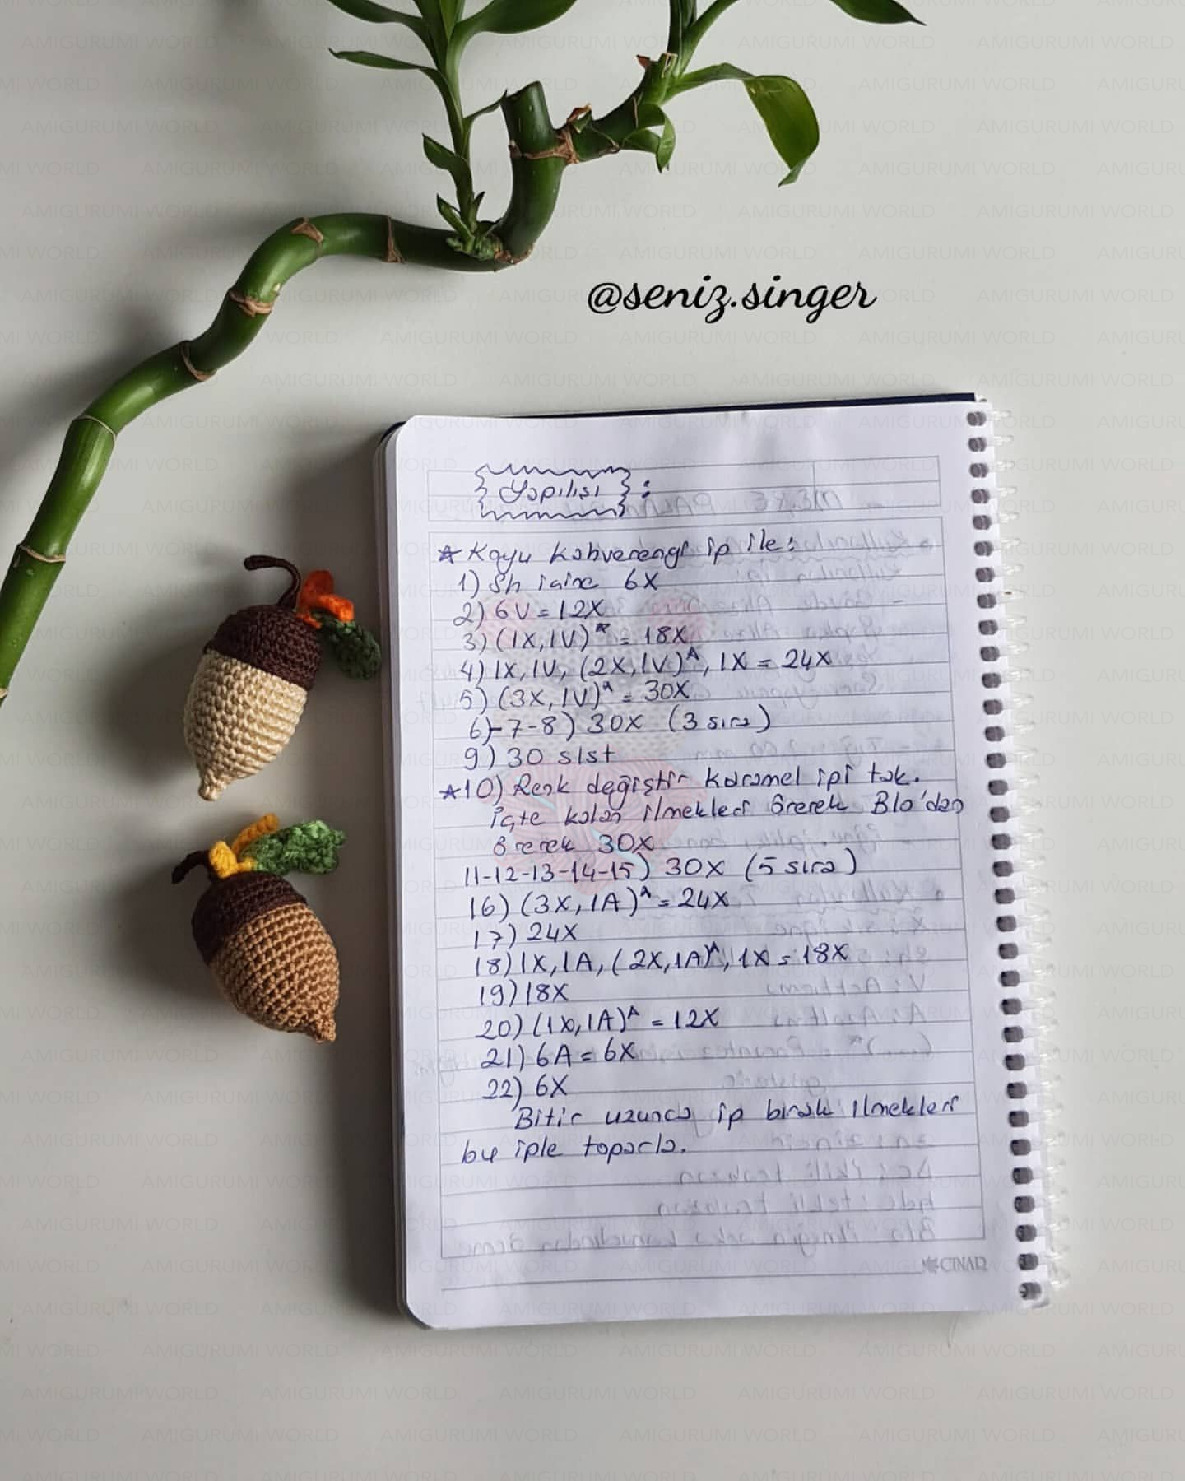 @seniz.singer
Yapılışı :
* Koyu kahverengi ip ile:
1) Sh içine 6X
2) 6V = 12X
3) (1X, 1V)* = 18X
4) 1X, 1V, (2X, 1V)*, 1X = 24X
5) (3X, 1V)* = 30X
6)-7-8) 30X (3 sıra)
9) 30 slst
*10) Renk değiştir karamel ipi tak.
içte kalan ilmekleri örerek Blo'dan
örerek 30X
11-12-13-14-15) 30X (5 sıra)
16) (3X, 1A)* = 24X
17) 24X
18) 1X, 1A, (2X, 1A)*, 1X = 18X
19) 18X
20) (1X, 1A)* = 12X
21) 6A = 6X
22) 6X
Bitir uzunca ip bırak ilmekleri
bu iple toparla.
ÇINAR
AMIGURUMI WORLD